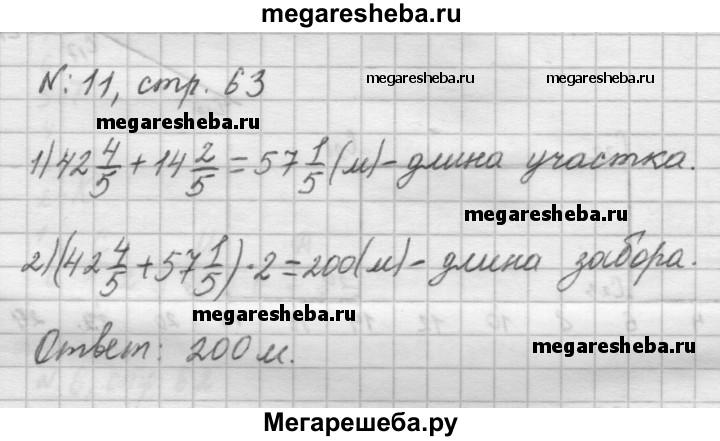 megaresheba.ru
№ 11, стр. 63
megaresheba.ru megaresheba.ru
megaresheba.ru
1) 42 4/5 + 14 2/5 = 57 1/5 (м) - длина участка.
megaresheba.ru
2) (42 4/5 + 57 1/5) · 2 = 200 (м) - длина забора.
megaresheba.ru
Ответ: 200 м.
megaresheba.ru
Мегарешеба.ру